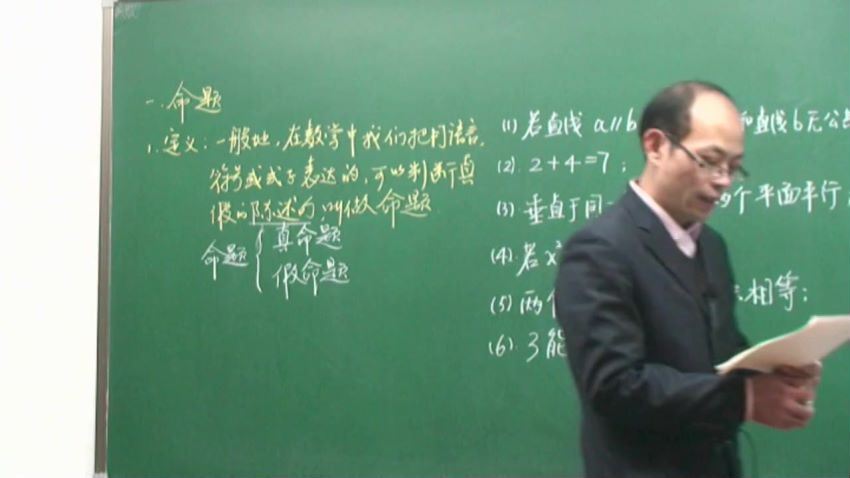 一.命题
1.定义:一般地,在数学中我们把用语言、
符号或式子表达的,可以判断真
假的陈述句,叫做命题.
命题{真命题
假命题
(1) 若直线 a∥b 和直线b无公
(2). 2+4=7;
(3) 垂直于同一 个平面平行;
(4). 若x²
(5) 两个 相等;
(6). 3能